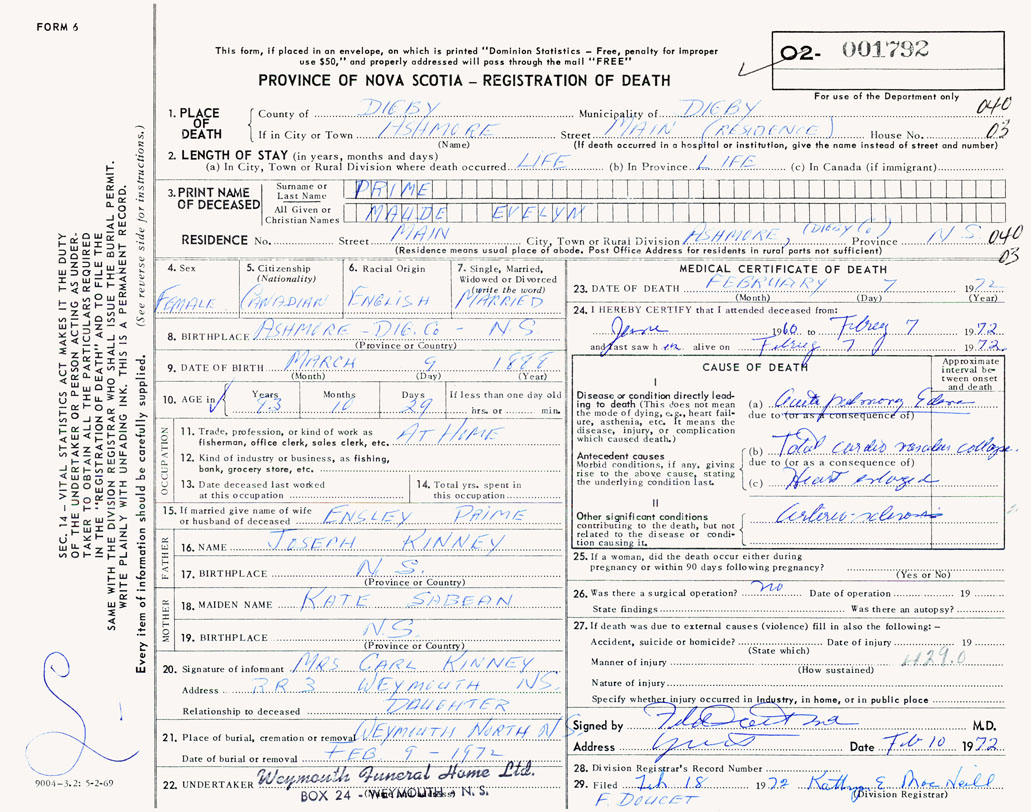 FORM 6
This form, if placed in an envelope, on which is printed "Dominion Statistics – Free, penalty for improper
use $50," and properly addressed will pass through the mail "FREE"
PROVINCE OF NOVA SCOTIA – REGISTRATION OF DEATH
02- 001792
For use of the Department only
040
03
1. PLACE OF DEATH
County of DIGBY Municipality of DIGBY
If in City or Town ASHMORE Street MAIN (RESIDENCE) House No.
(Name) (If death occurred in a hospital or institution, give the name instead of street and number)
2. LENGTH OF STAY (in years, months and days)
(a) In City, Town or Rural Division where death occurred LIFE (b) In Province LIFE (c) In Canada (if immigrant)
3. PRINT NAME OF DECEASED
Surname or Last Name PRIME
All Given or Christian Names MAUDE EVELYN
RESIDENCE No. Street MAIN City, Town or Rural Division ASHMORE, (DIGBY Co) Province N S
(Residence means usual place of abode. Post Office Address for residents in rural parts not sufficient)
040
03
4. Sex
FEMALE
5. Citizenship
(Nationality)
CANADIAN
6. Racial Origin
ENGLISH
7. Single, Married,
Widowed or Divorced
(write the word)
MARRIED
8. BIRTHPLACE ASHMORE - DIG. Co - N S
(Province or Country)
9. DATE OF BIRTH MARCH 9 1888
(Month) (Day) (Year)
10. AGE in Years Months Days If less than one day old
93 10 29 hrs. or min.
OCCUPATION
11. Trade, profession, or kind of work as
fisherman, office clerk, sales clerk, etc. AT HOME
12. Kind of industry or business, as fishing,
bank, grocery store, etc.
13. Date deceased last worked
at this occupation
14. Total yrs. spent in
this occupation
15. If married give name of wife
or husband of deceased ENSLEY PRIME
FATHER
16. NAME JOSEPH KINNEY
17. BIRTHPLACE N. S.
(Province or Country)
MOTHER
18. MAIDEN NAME KATE SABEAN
19. BIRTHPLACE N.S.
(Province or Country)
20. Signature of informant MRS CARL KINNEY
Address RR 3 WEYMOUTH NS.
Relationship to deceased DAUGHTER
21. Place of burial, cremation or removal WEYMOUTH NORTH N.S.
Date of burial or removal FEB 9 - 1972
22. UNDERTAKER Weymouth Funeral Home Ltd.
BOX 24 - WEYMOUTH - N. S.
MEDICAL CERTIFICATE OF DEATH
23. DATE OF DEATH FEBRUARY 7 1972
(Month) (Day) (Year)
24. I HEREBY CERTIFY that I attended deceased from:
1960 to 7 1972
and last saw h er alive on 7 1972
CAUSE OF DEATH
Approximate
interval be-
tween onset
and death
I
Disease or condition directly lead-
ing to death (This does not mean
the mode of dying, e.g., heart fail-
ure, asthenia, etc. It means the
disease, injury, or complication
which caused death.)
(a) Acute pulmonary Edema
due to (or as a consequence of)
Antecedent causes
Morbid conditions, if any, giving
rise to the above cause, stating
the underlying condition last.
(b) Total cardio vascular collapse.
due to (or as a consequence of)
(c) Heart enlarged
II
Other significant conditions
contributing to the death, but not
related to the disease or condi-
tion causing it.
Arterio-sclerosis
25. If a woman, did the death occur either during
pregnancy or within 90 days following pregnancy?
(Yes or No)
26. Was there a surgical operation? no Date of operation 19
State findings Was there an autopsy?
27. If death was due to external causes (violence) fill in also the following: –
Accident, suicide or homicide? Date of injury 19
(State which)
Manner of injury 429.0
(How sustained)
Nature of injury
Specify whether injury occurred in industry, in home, or in public place
Signed by M.D.
Address Date Feb 10 1972
28. Division Registrar's Record Number
29. Filed Feb 18 1972 Kathryn E. MacNeill
(Division Registrar)
F. DOUCET
SEC. 14 – VITAL STATISTICS ACT MAKES IT THE DUTY
OF THE UNDERTAKER OR PERSON ACTING AS UNDER-
TAKER TO OBTAIN ALL THE PARTICULARS REQUIRED
IN THE "REGISTRATION OF DEATH" AND TO FILE THE
SAME WITH THE DIVISION REGISTRAR WHO SHALL ISSUE THE BURIAL PERMIT.
WRITE PLAINLY WITH UNFADING INK. THIS IS A PERMANENT RECORD.
Every item of information should be carefully supplied. (See reverse side for instructions.)
9004-3.2: 5-2-69